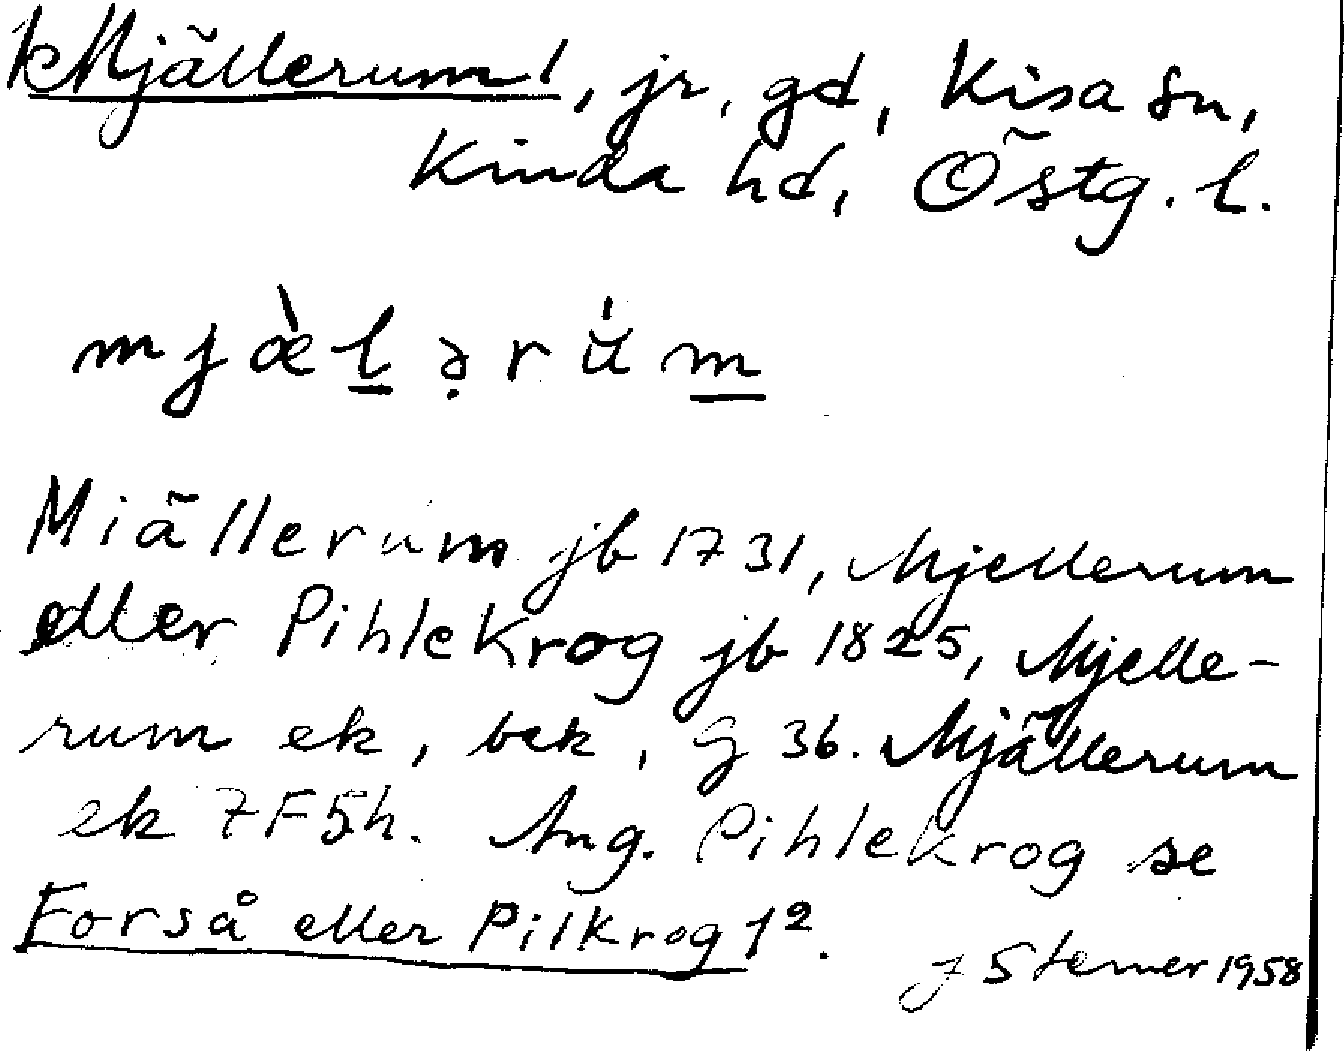 k Mjällerum¹, jr, gd, Kisa sn,
Kinda hd, Östg. l.
mjæ̀l̲ə̣rú̆m̲
Miällerum jb 1731, Mjellerum
eller Pihlekrog jb 1825, Mjelle-
rum ek, bek, G 36. Mjällerum
ek 7F5h. Ang. Pihlekrog se
Forså eller Pilkrog 1².
J Sterner 1958